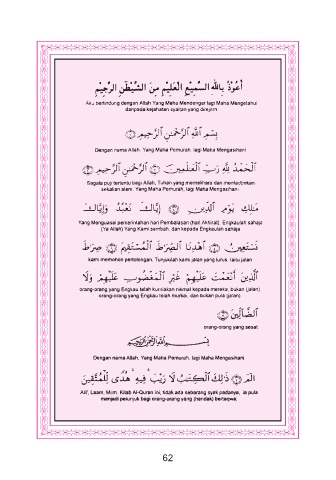 أَعُوْذُ بِاللهِ السَّمِيْعِ الْعَلِيْمِ مِنَ الشَّيْطٰنِ الرَّجِيْمِ
Aku berlindung dengan Allah Yang Maha Mendengar lagi Maha Mengetahui
daripada kejahatan syaitan yang direjam
بِسْمِ ٱللَّهِ ٱلرَّحْمَـٰنِ ٱلرَّحِيمِ ۝١
Dengan nama Allah, Yang Maha Pemurah, lagi Maha Mengasihani
ٱلْحَمْدُ لِلَّهِ رَبِّ ٱلْعَـٰلَمِينَ ۝٢ ٱلرَّحْمَـٰنِ ٱلرَّحِيمِ ۝٣
Segala puji tertentu bagi Allah, Tuhan yang memelihara dan mentadbirkan
sekalian alam. Yang Maha Pemurah, lagi Maha Mengasihani.
مَـٰلِكِ يَوْمِ ٱلدِّينِ ۝٤ إِيَّاكَ نَعْبُدُ وَإِيَّاكَ
Yang Menguasai pemerintahan hari Pembalasan (hari Akhirat). Engkaulah sahaja
(Ya Allah) Yang Kami sembah, dan kepada Engkaulah sahaja
نَسْتَعِينُ ۝٥ ٱهْدِنَا ٱلصِّرَٰطَ ٱلْمُسْتَقِيمَ ۝٦ صِرَٰطَ
kami memohon pertolongan. Tunjuklah kami jalan yang lurus. Iaitu jalan
ٱلَّذِينَ أَنْعَمْتَ عَلَيْهِمْ غَيْرِ ٱلْمَغْضُوبِ عَلَيْهِمْ وَلَا
orang-orang yang Engkau telah kurniakan nikmat kepada mereka, bukan (jalan)
orang-orang yang Engkau telah murkai, dan bukan pula (jalan)
ٱلضَّآلِّينَ ۝٧
orang-orang yang sesat
بِسْمِ اللهِ الرَّحْمٰنِ الرَّحِيْمِ
Dengan nama Allah, Yang Maha Pemurah, lagi Maha Mengasihani
الٓمٓ ۝١ ذَٰلِكَ ٱلْكِتَـٰبُ لَا رَيْبَ ۛ فِيهِ ۛ هُدًى لِّلْمُتَّقِينَ
Alif, Laam, Miim. Kitab Al-Quran ini, tidak ada sebarang syak padanya, ia pula
menjadi petunjuk bagi orang-orang yang (hendak) bertaqwa;
62